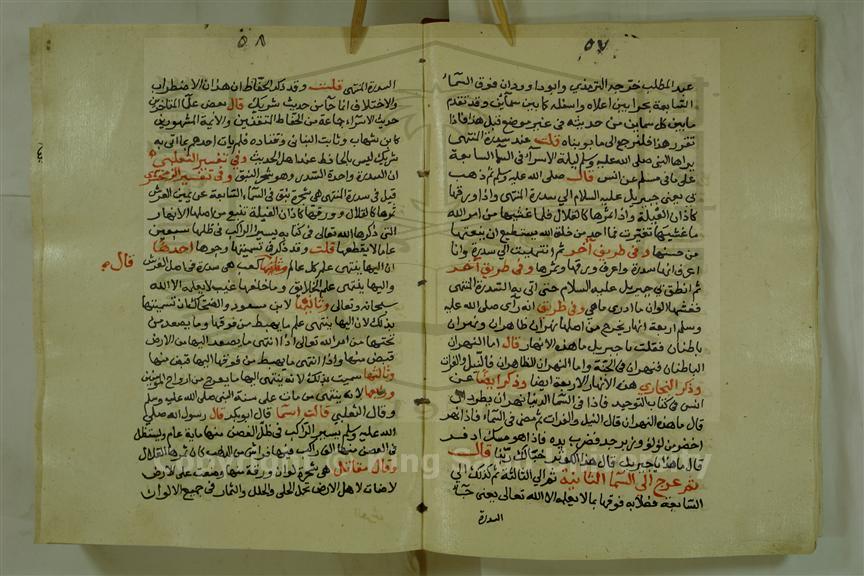 ٥٧
عبد المطلب خرجه الترمذي وابو داود وان فوق السماء
السابعة بحرا بين اعلاه واسفله كما بين سماين وقد تقدم
ما بين كل سماين من حديثه في غير موضع قبل هذا فاذا
تقرر هذا فلنرجع الى ما بوبناه قلت عند سدرة المنتهى
يراها النبي صلى الله عليه وسلم ليلة الاسراء في السما السابعة
على ما في مسلم عن انس قال صلى الله عليه وسلم ثم ذهب
بي يعني جبريل عليه السلام الى سدرة المنتهى واذا ورقها
كاذان الفيلة واذا ثمرها كالقلال فلما غشيها من امر الله
ما غشيها تغيرت فما احد من خلق الله يستطيع ان ينعتها
من حسنها وفي طريق آخر ثم انتهيت الى سدرة وانا
اعرف انها سدرة واعرف ورقها وثمرها وفي طريق آخر
ثم انطلق بي جبريل عليه السلام حتى اتى بي السدرة المنتهى
فغشيها الوان ما ادري ما هي وفي طريق انه رأى صلى الله عليه
وسلم اربعة انهار يخرج من اصلها نهران ظاهران ونهران
باطنان فقلت ما جبريل ما هذه الانهار قال اما النهران
الباطنان فنهران في الجنة واما النهران الظاهران فالنيل والفرات
وذكر البخاري هذه الانهار الاربعة ايضا وذكر ايضا عن
انس في كتاب التوحيد فاذا في السما الدنيا نهران يطردان
قال ما هذه نهران قال النيل والفرات ثم مضى في السماء فاذا نهر
اخضر من لؤلؤ وزبرجد فضرب يده فاذا هو مسك اذفر
قال ما هذا يا جبريل قال هذا الكوثر خبا لك ربك قال
ثم عرج الى السما الثانية ثم الى الثالثة ثم كذلك الى
السابعة فعلا به فوقها بما لا يعلمه الا الله تعالى يعني حتى
السدرة
٥٨
السدرة المنتهى قلت وقد ذكر الحفاظ ان هذا الاضطراب
والاختلاف انما جا من حديث شريك قال بعض علما المتأخرين
حديث الاسراء جماعة من الحفاظ المتقنين والائمة المشهورين
كابن شهاب وثابت البناني وقتادة فلم يات احدهم بما اتى به
شريك ليس بالحافظ عند اهل الحديث وفي تفسير الثعلبي
ان السدرة واحدة السدر وهو شجر النبق وفي تفسير الزمخشري
قيل في سدرة المنتهى هي شجرة نبق في السماء السابعة عن يمين العرش
ثمرها كالقلال وورقها كاذان الفيلة تنبع من اصلها الانهار
التي ذكرها الله تعالى في كتابه يسير الراكب في ظلها سبعين
عاما لا يقطعها قلت وقد ذكر في تسميتها وجوها احدها
ان اليها ينتهى علم كل عالم وثانيها كعب هي سدرة في اصل العرش
قال
واليها ينتهى علم الخلايق وما خلفها غيب لا يعلمه الا الله
سبحانه وتعالى وثالثها لابن مسعود والضحاك ان تسميتها
بذلك لان اليها ينتهى علم ما يهبط من فوقها وما يصعد من
تحتها من امر الله تعالى اذا انتهى ما يصعد اليها من الارض
قبض منها واذا انتهى ما يهبط من فوقها اليها قبض منها
وثالثها سميت بذلك لانه ينتهى اليها ما يعرج من ارواح المؤمنين
ورابعها لانه ينتهى من مات على سنة النبي صلى الله عليه وسلم
وقال الثعلبي قالت اسما قال ابو بكر قال رسول الله صلى
الله عليه وسلم يسير الراكب في ظل الغصن منها ماية عام ويستظل
في الغصن منها الف راكب فيها فراش من الذهب كان ثمرها القلال
وقال مقاتل هي شجرة لو ان ورقة منها وضعت على الارض
لاضات لاهل الارض تحمل الحلى والحلل والثمار في جميع الالوان